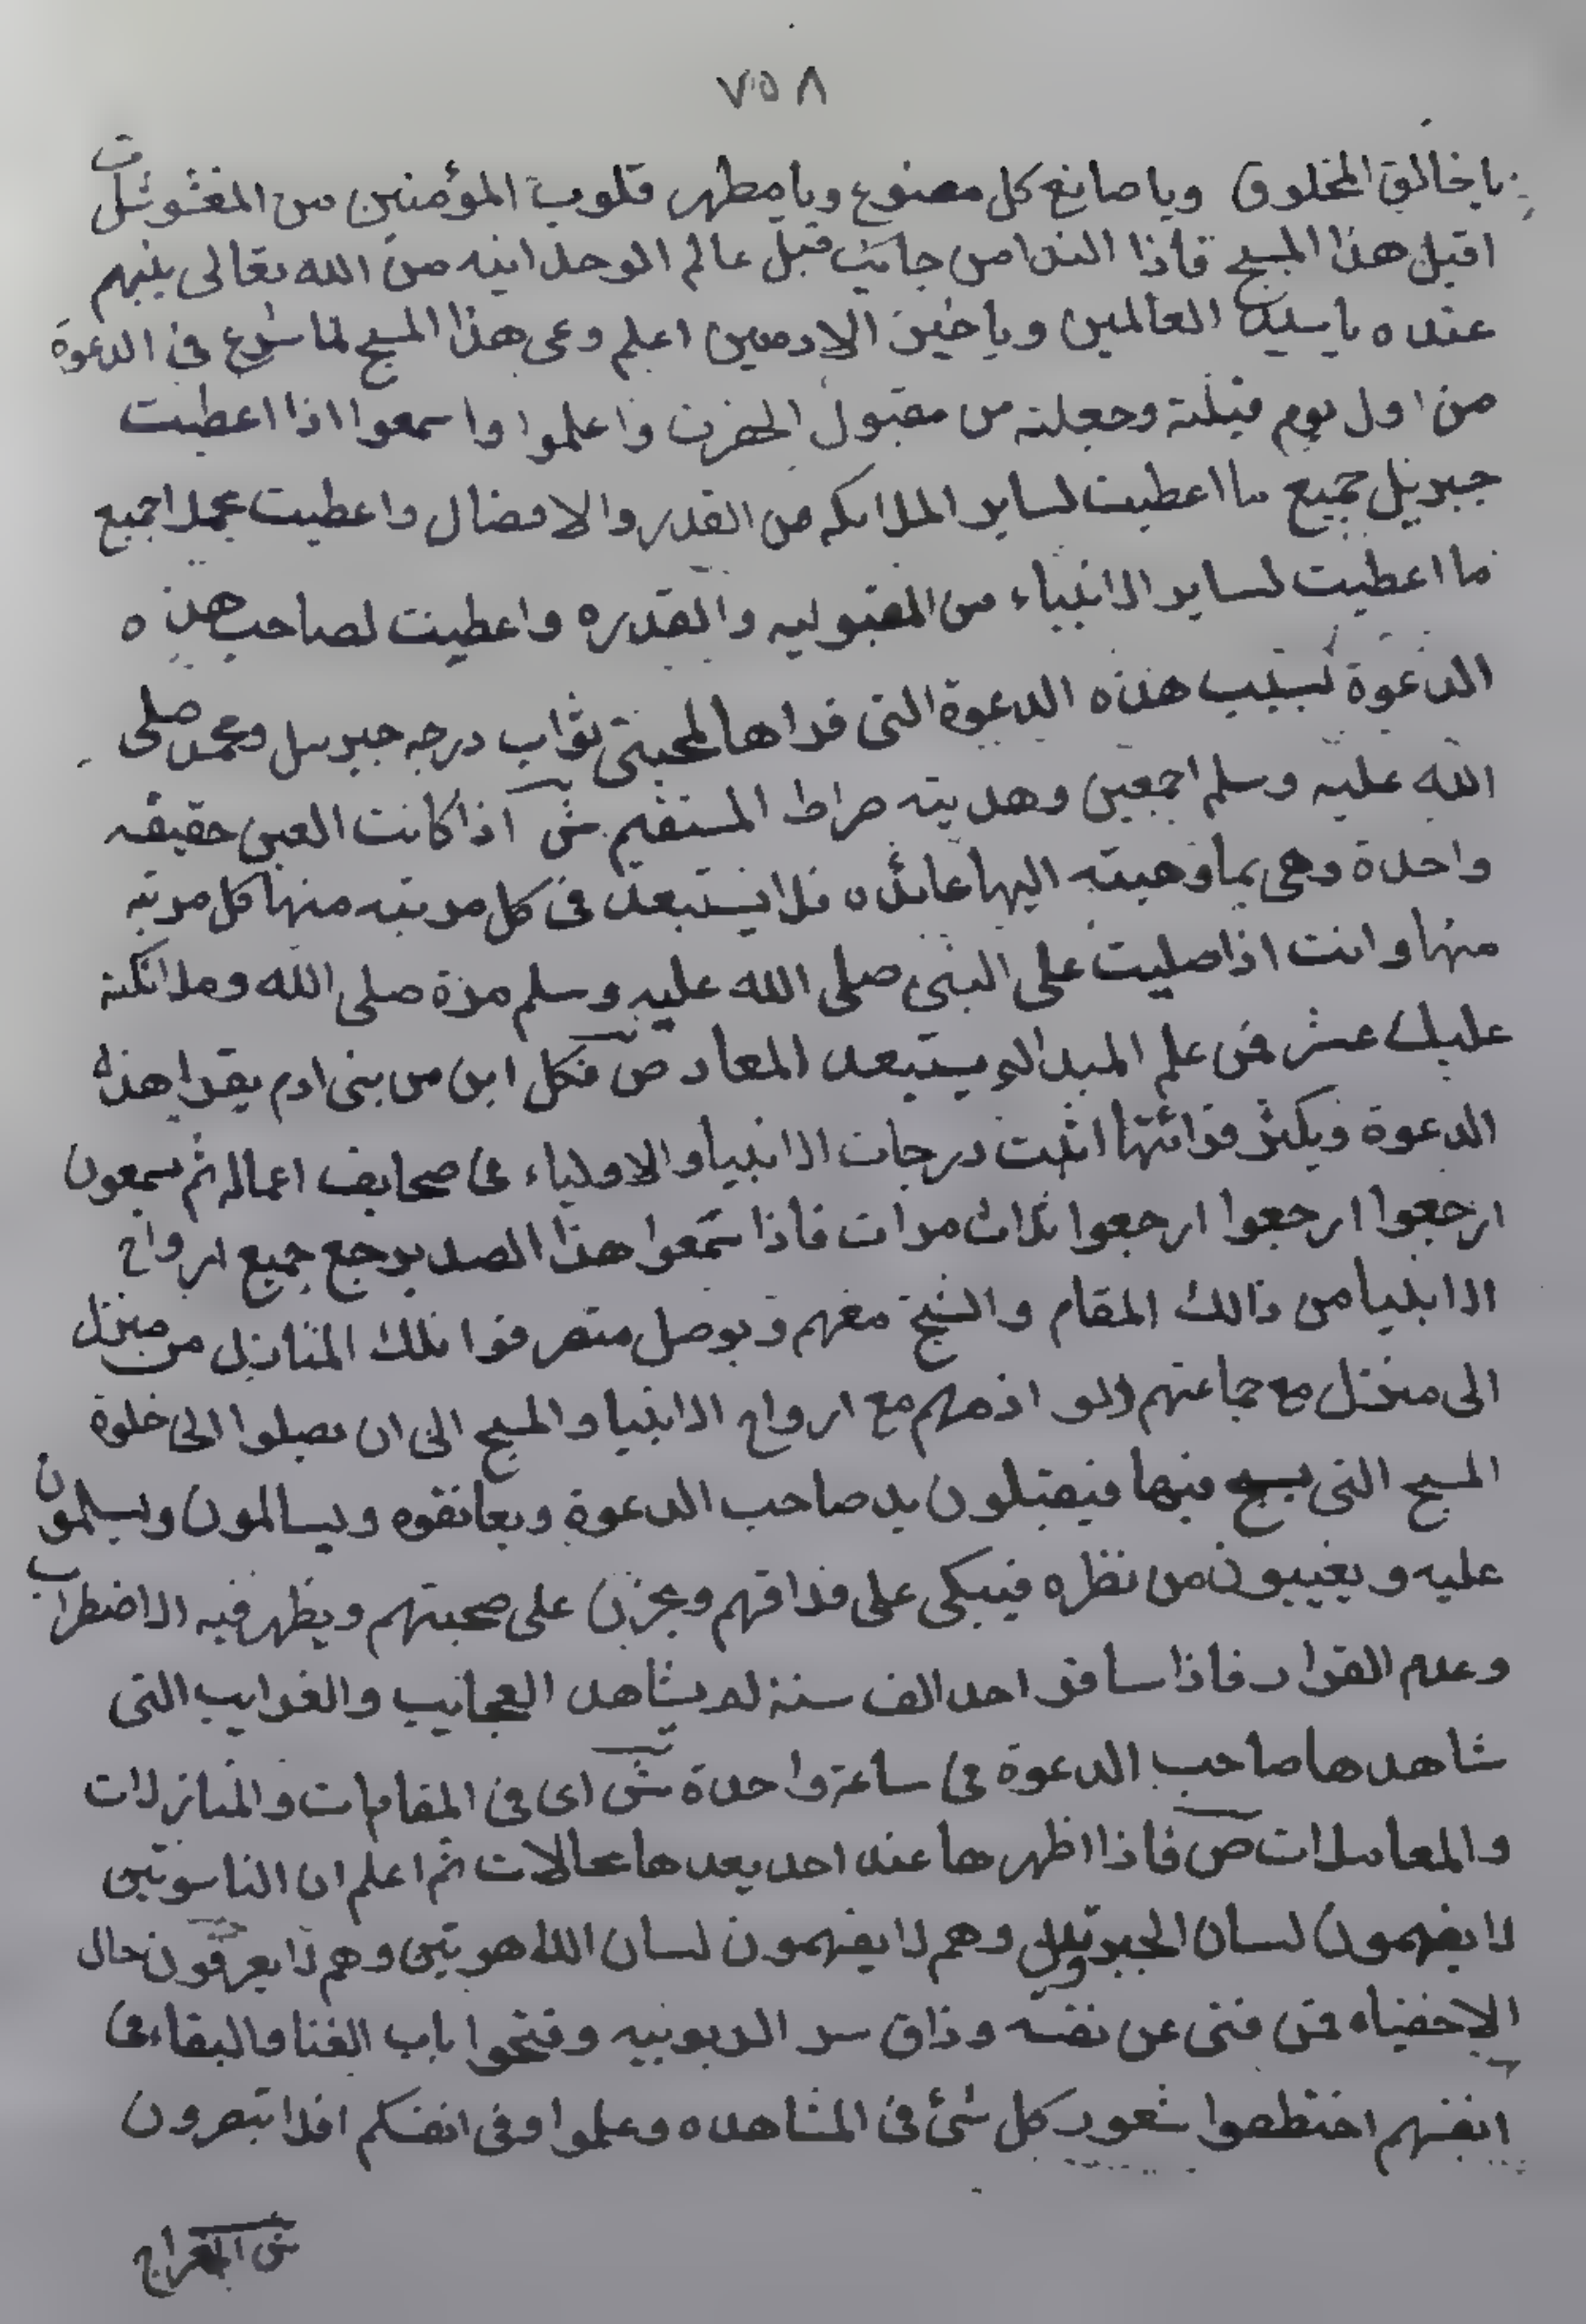 ٧٥٨
يا خالق المخلوق ويا صانع كل مصنوع ويا مطهر قلوب المؤمنين من المغشوشات
اقبل هذا المسبح فاذا الندا من جانب قبل عالم الوحدانيه من الله تعالى ينبهم
عنده يا سيد العالمين ويا خير الادميين اعلم وعى هذا المسبح لما شرع في الدعوة
من اول يوم قبلته وجعلته من مقبول الحضرت واعلموا واسمعوا اذا اعطيت
جبريل جميع ما اعطيت لساير الملائكه من القدر والافضال واعطيت محمد اجميع
ما اعطيت لساير الانبياء من المقبوليه والقدره واعطيت لصاحب هذه
الدعوة بسبب هذه الدعوة التى قراها لمحبتى ثواب درجه جبريل ومحمد صلى
الله عليه وسلم اجمعين وهديته صراط المستقيم ش اذا كانت العين حقيقه
واحدة وهى بماوهبته اليها عائده فلا يستبعد فى كل مرتبه منها كل مرتبه
منها وانت اذا صليت على النبى صلى الله عليه وسلم مرة صلى الله وملائكته
عليك عشر فمن علم المبدا لم يستبعد المعاد ص فكل ابن من بنى ادم يقرا هذه
الدعوة ويكثر قرائتها اثبت درجات الانبيا والاولياء على صحايف اعماله ثم يسمعون
ارجعوا ارجعوا ارجعوا ثلاث مرات فاذا سمعوا هذا الصد يرجع جميع ارواح
الانبيا من ذالك المقام والشيخ معهم ويوصل متصرفوا تلك المنازل من منزل
الى منزل مع جماعتهم مع ارواح الانبيا والمسبح الى ان يصلوا الى خلوة
المسبح التى يسبح فيها فيقبلون يد صاحب الدعوة ويعانقوه ويسالمون ويسلمون
عليه ويغيبون من نظره فيبكى على فراقهم ويحزن على صحبتهم ويظهر فيه الاضطراب
وعدم القرار فاذا سافر احد الف سنة لم يشاهد العجايب والغرايب التى
شاهدها صاحب الدعوة فى ساعة واحدة ش اى فى المقامات والمنازلات
والمعاملات ص فاذا اظهرها عند احد يعدها محالات ثم اعلم ان الناسوتين
لا يفهمون لسان الجبروتين وهم لا يفهمون لسان اللاهوتين وهم لا يعرفون حال
الاخفياء فمن فنى عن نفسه وذاق سر الربوبيه وفتحوا باب الفنا والبقاء فى
انفسهم اختطفوا شعور كل شئ فى المشاهده وعلموا وفى انفسكم افلا تبصرون
ش المعراج